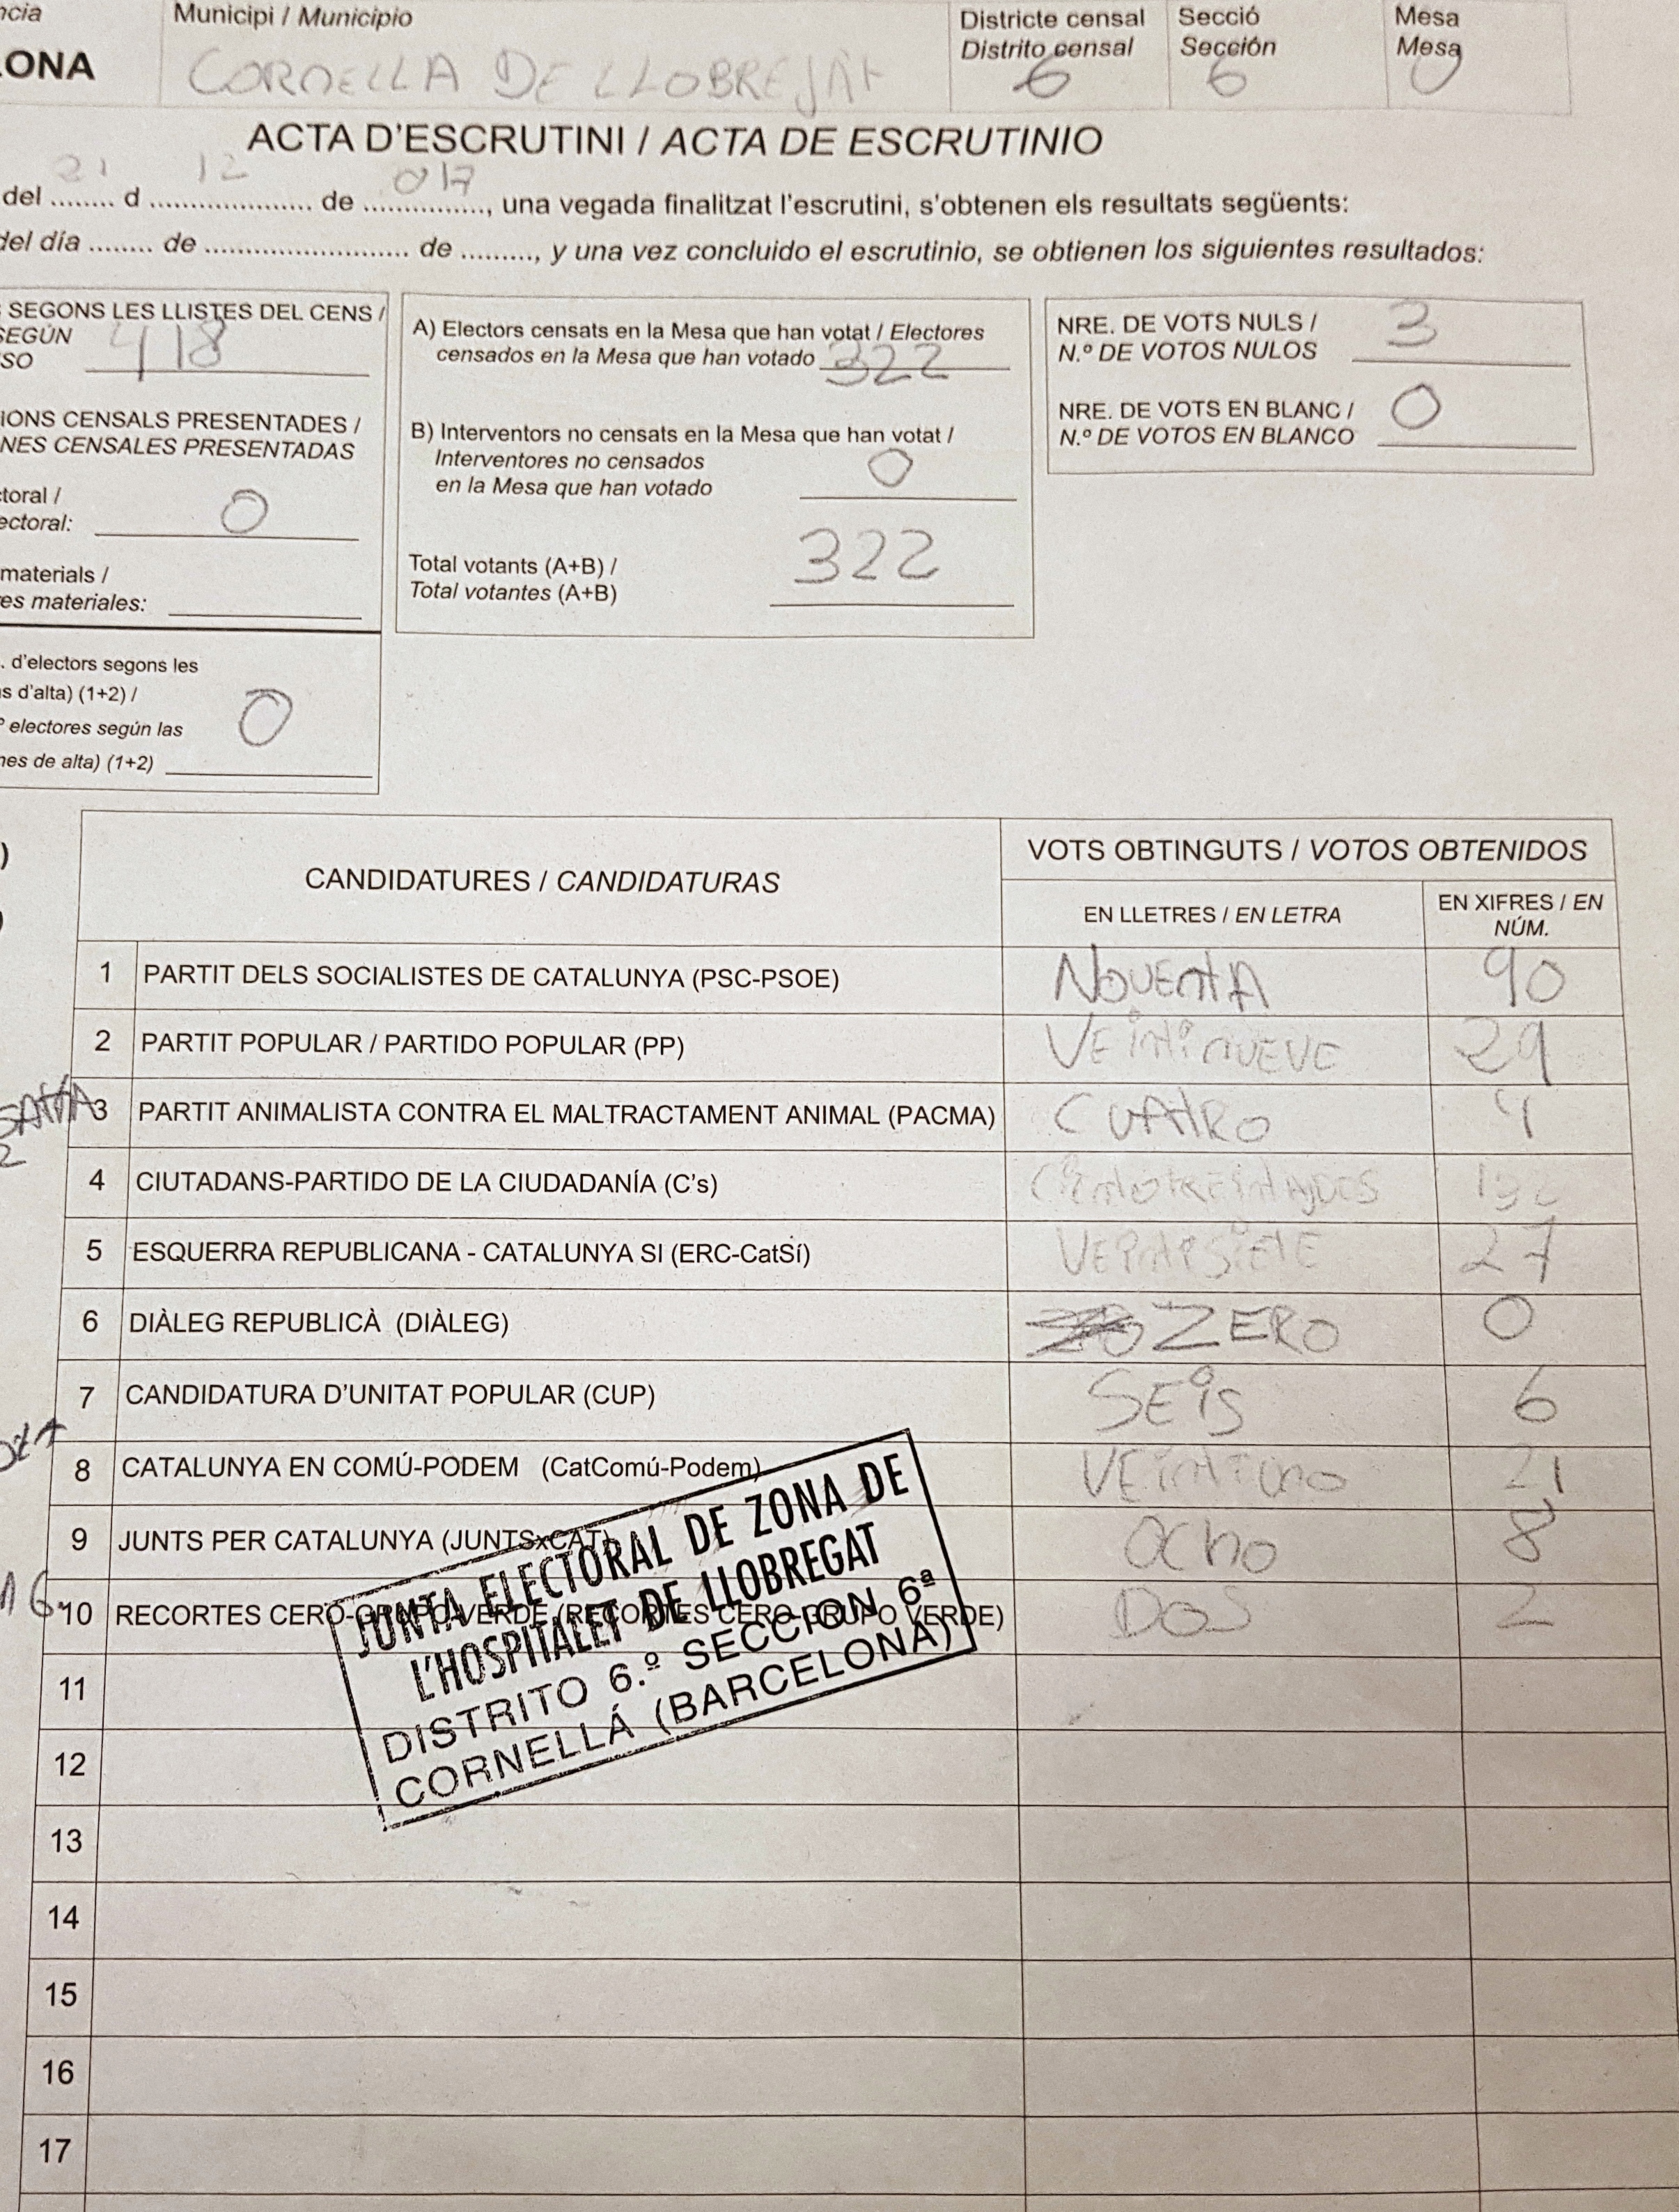 ncia Municipi / Municipio Districte censal Secció Mesa
Distrito censal Sección Mesa
LONA CORNELLA DE LLOBREJAT 6 6 U
ACTA D'ESCRUTINI / ACTA DE ESCRUTINIO
21 12 017
del ........ d .................... de ..............., una vegada finalitzat l'escrutini, s'obtenen els resultats següents:
del día ........ de ......................... de ........., y una vez concluido el escrutinio, se obtienen los siguientes resultados:
SEGONS LES LLISTES DEL CENS /
SEGÚN
SO 418
IONS CENSALS PRESENTADES /
NES CENSALES PRESENTADAS
ctoral /
ectoral: 0
materials /
es materiales:
. d'electors segons les
s d'alta) (1+2) /
º electores según las
nes de alta) (1+2) 0
A) Electors censats en la Mesa que han votat / Electores
censados en la Mesa que han votado 322
B) Interventors no censats en la Mesa que han votat /
Interventores no censados
en la Mesa que han votado 0
Total votants (A+B) /
Total votantes (A+B) 322
NRE. DE VOTS NULS /
N.º DE VOTOS NULOS 3
NRE. DE VOTS EN BLANC /
N.º DE VOTOS EN BLANCO 0
CANDIDATURES / CANDIDATURAS
VOTS OBTINGUTS / VOTOS OBTENIDOS
EN LLETRES / EN LETRA
EN XIFRES / EN
NÚM.
1 PARTIT DELS SOCIALISTES DE CATALUNYA (PSC-PSOE) NOVENTA 90
2 PARTIT POPULAR / PARTIDO POPULAR (PP) VEINTINUEVE 29
3 PARTIT ANIMALISTA CONTRA EL MALTRACTAMENT ANIMAL (PACMA) CUATRO 4
4 CIUTADANS-PARTIDO DE LA CIUDADANÍA (C's) CIENTOTREINTAJDOS 132
5 ESQUERRA REPUBLICANA - CATALUNYA SI (ERC-CatSí) VEINTISIETE 27
6 DIÀLEG REPUBLICÀ (DIÀLEG) ZERO 0
7 CANDIDATURA D'UNITAT POPULAR (CUP) SEIS 6
8 CATALUNYA EN COMÚ-PODEM (CatComú-Podem) VEINTIUNO 21
9 JUNTS PER CATALUNYA (JUNTSxCAT) OCHO 8
10 RECORTES CERO-GRUPO VERDE (RECORTES CERO-GRUPO VERDE) DOS 2
JUNTA ELECTORAL DE ZONA DE
L'HOSPITALET DE LLOBREGAT
DISTRITO 6.º SECCION 6ª
CORNELLÁ (BARCELONA)
11
12
13
14
15
16
17